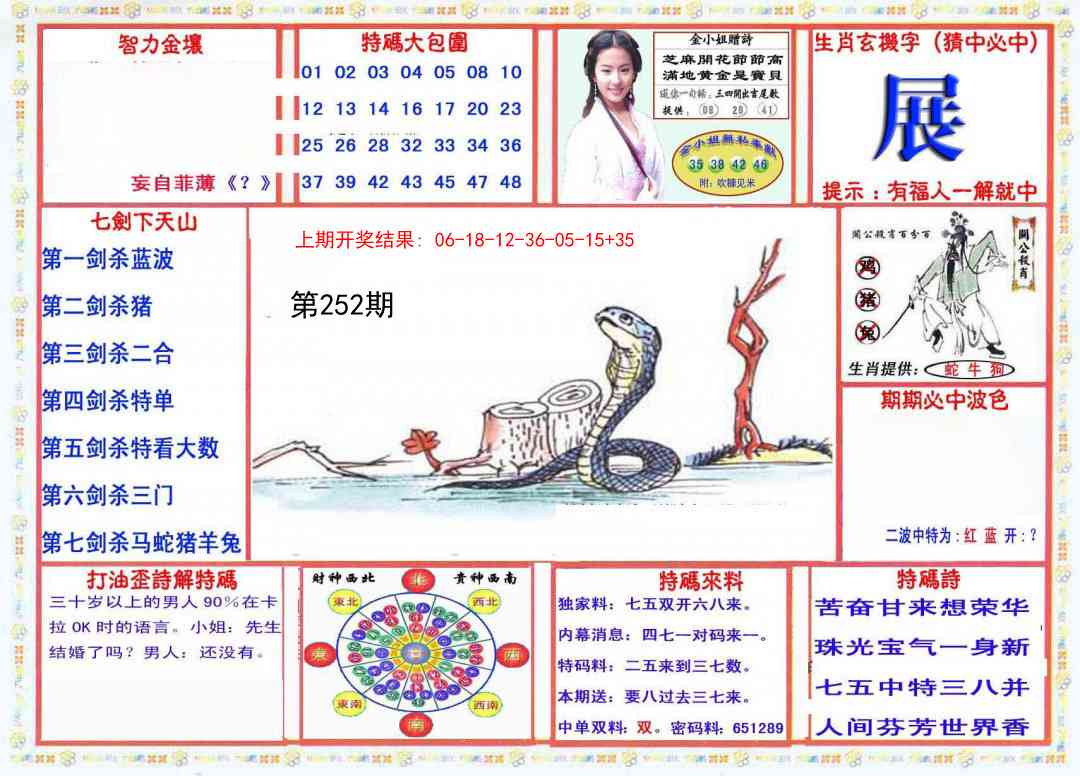 智力金壤
妄自菲薄《？》
特碼大包圍
01 02 03 04 05 08 10
12 13 14 16 17 20 23
25 26 28 32 33 34 36
37 39 42 43 45 47 48
金小姐贈詩
芝麻開花節節高
滿地黃金是寶貝
三四開出言尾數
提供：(08) 20 (41)
金小姐無私奉獻
35 38 42 46
附：吹糠见米
生肖玄機字（猜中必中）
展
提示：有福人一解就中
七劍下天山
第一剑杀蓝波
第二剑杀猪
第三剑杀二合
第四剑杀特单
第五剑杀特看大数
第六剑杀三门
第七剑杀马蛇猪羊兔
上期开奖结果：06-18-12-36-05-15+35
第252期
關公殺肖百分百
關公殺肖
鸡
猪
兔
生肖提供：蛇 牛 狗
期期必中波色
二波中特为：红 蓝 开：？
打油歪詩解特碼
三十岁以上的男人 90％在卡
拉 OK 时的语言。小姐：先生
结婚了吗？男人：还没有。
財神西北 貴神西南
北
東北 西北
東 西
東南 西南
南
特碼來料
独家料：七五双开六八来。
内幕消息：四七一对码来一。
特码料：二五来到三七数。
本期送：要八过去三七来。
中单双料：双。密码料：651289
特碼詩
苦奋甘来想荣华
珠光宝气一身新
七五中特三八并
人间芬芳世界香